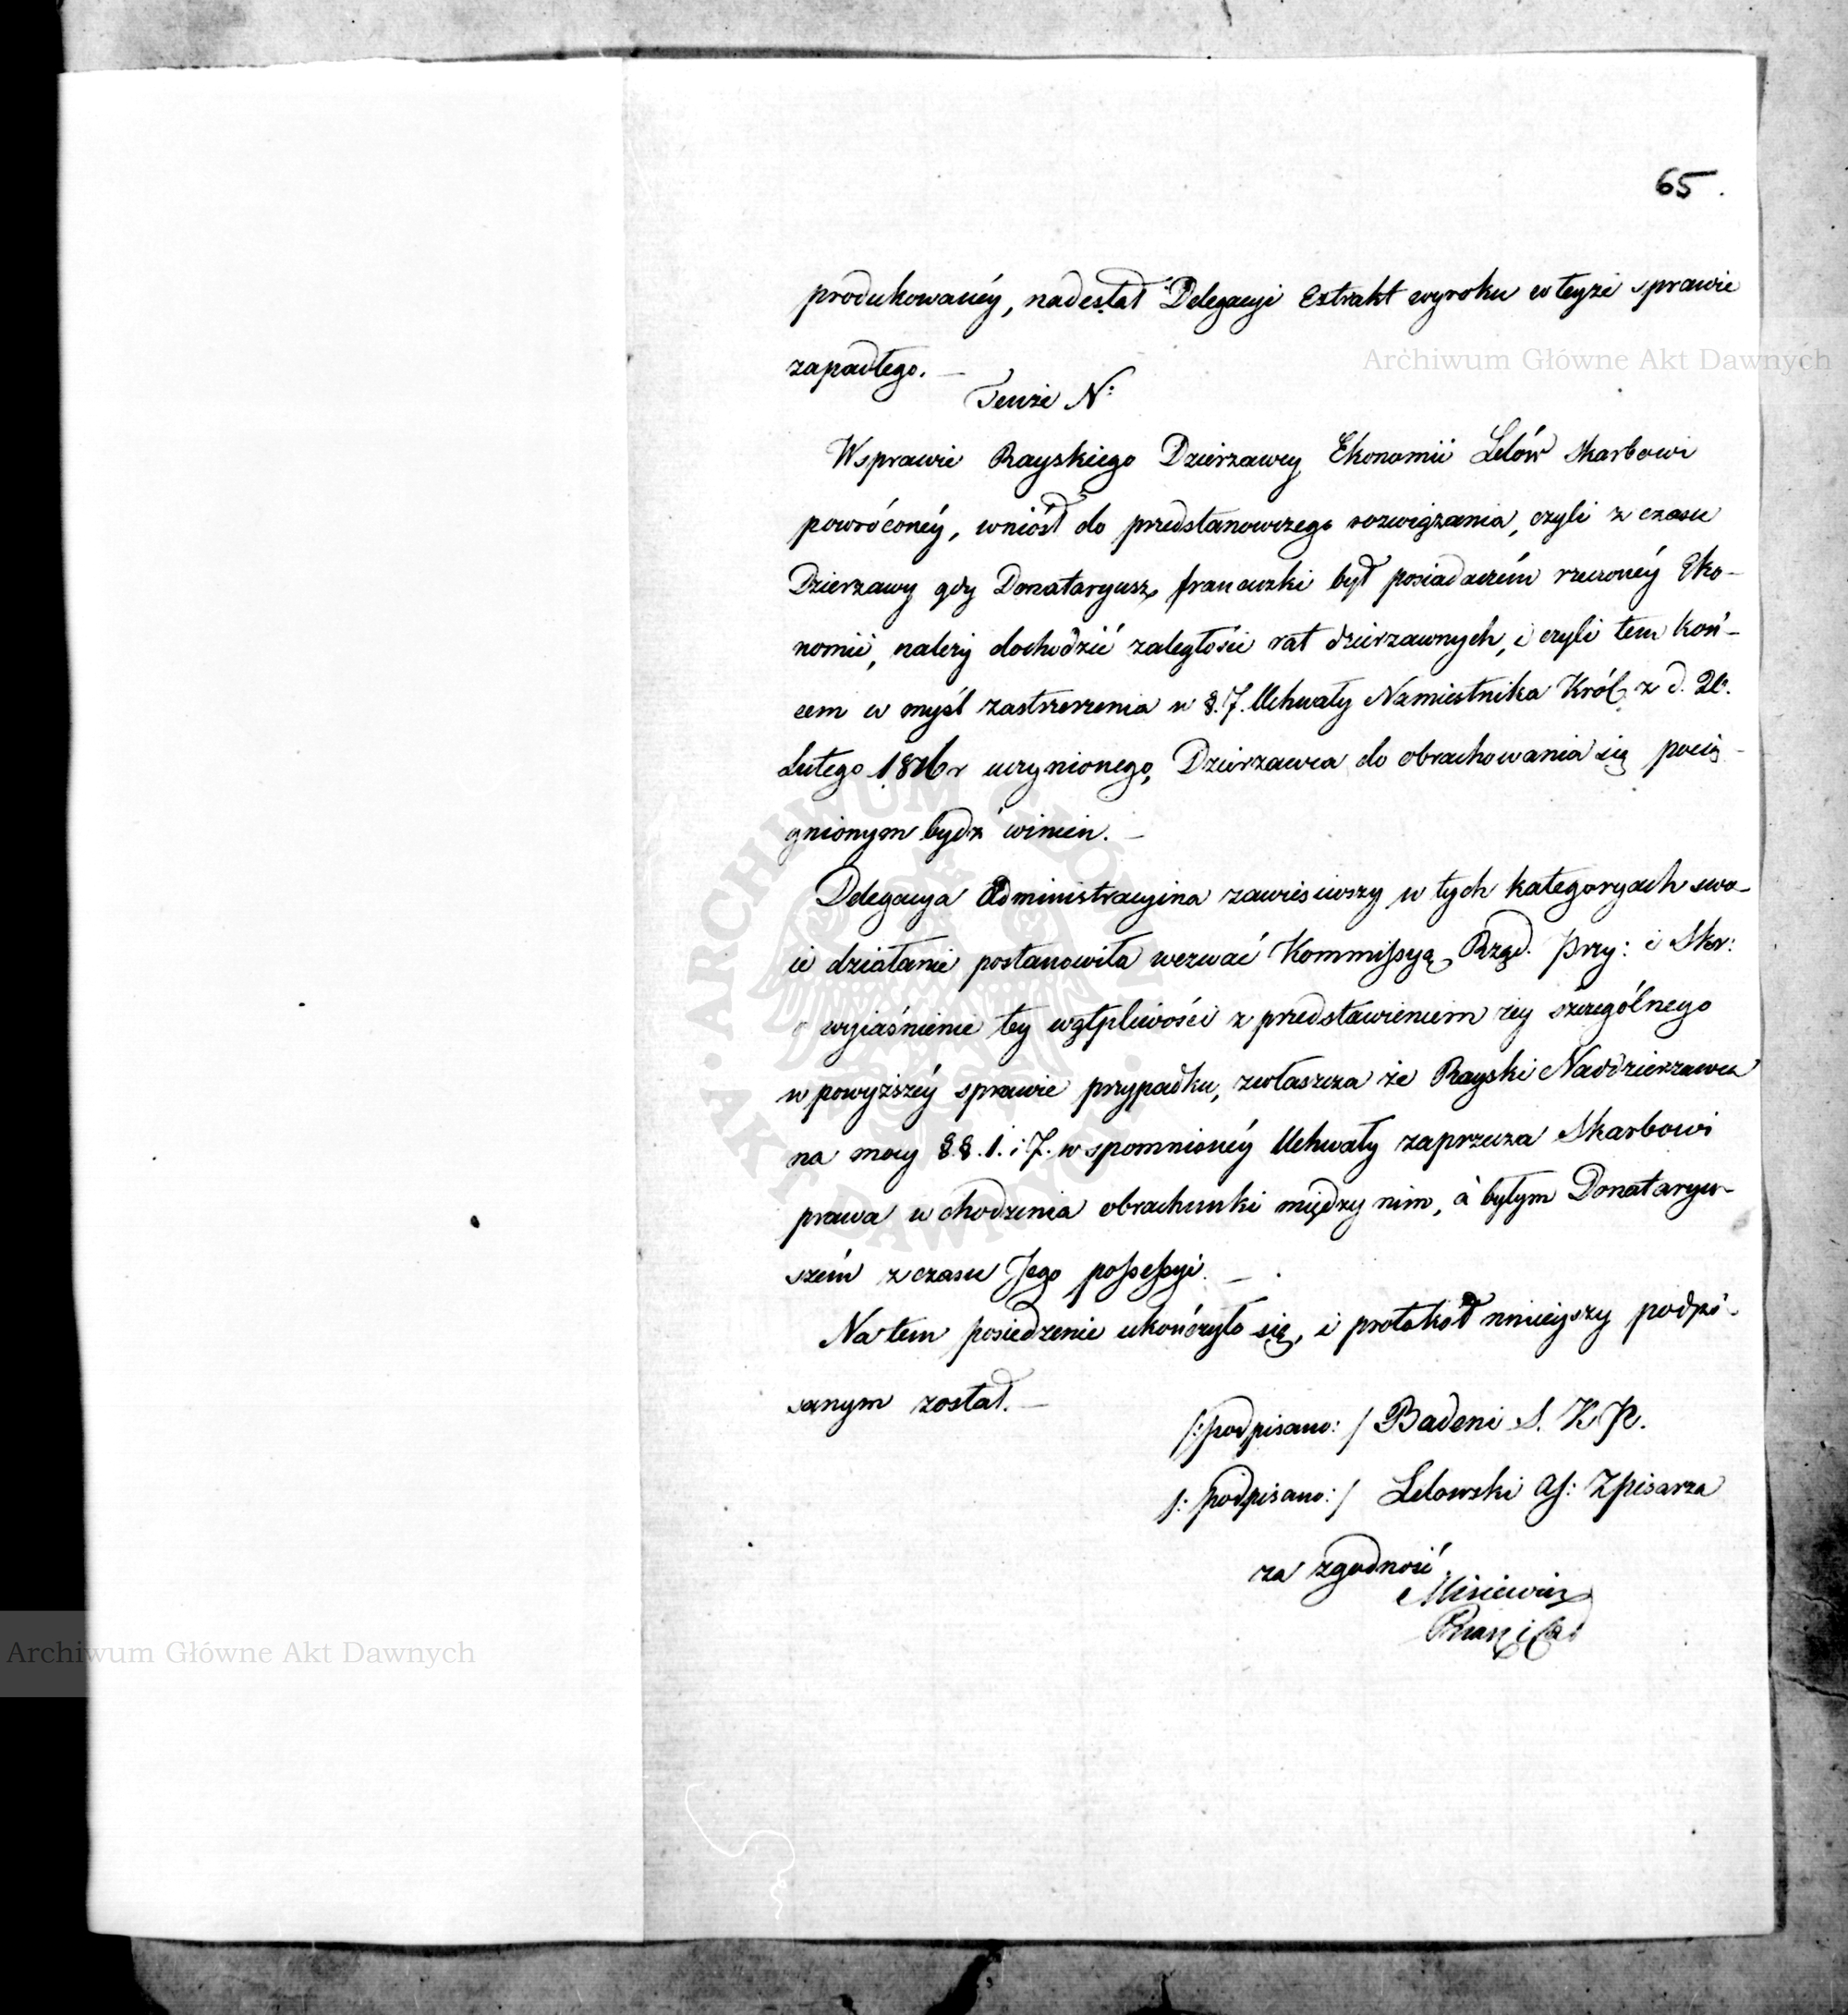 65.
produkowanéy, nadesłał Delegacyi Extrakt wyroku w teyże sprawie
Archiwum Główne Akt Dawnych
zapadłego. —
Tenże N:
W sprawie Rayskiego Dzierzawcy Ekonomii Lelów Skarbowi
powróconéy, wniósł do przedstanowczego rozwiązania, czyli z czasu
Dzierzawy gdy Donataryusz francuzki był posiadaczém rzeczonéy Eko-
nomii, należy dochodzić zaległości rat dzierzawnych, i czyli tem koń-
cem w myśl zastrzerzenia w §. 7. Uchwały Namiestnika Król. z d.
Lutego 1816 r uczynionego, Dzierzawca do obrachowania się pocią-
gnionym bydź winien. —
Delegacya Administracyina zawiesiwszy w tych kategoryach swo-
ie działanie postanowiła wezwać Kommissyą Rząd. Przy: i Skr:
o wyiaśnienie tey wątpliwości z przedstawieniem iey szczególnego
w powyższéy sprawie przypadku, zwłaszcza że Rayski Naddzierzawca
na mocy §.§. 1. i 7. wspomnionéy Uchwały zaprzecza Skarbowi
prawa wchodzenia obrachunki między nim, à byłym Donataryu-
szém z czasu Jego possessyi. —
Na tem posiedzenie ukończyło się, i protokół ninieyszy podpi-
sanym został. —
/:podpisano:/ Badeni S. K P.
/:podpisano:/ Lelowski As: Z pisarza
za zgodność
Misiewicz
ARCHIWUM GŁÓWNE AKT DAWNYCH
Archiwum Główne Akt Dawnych